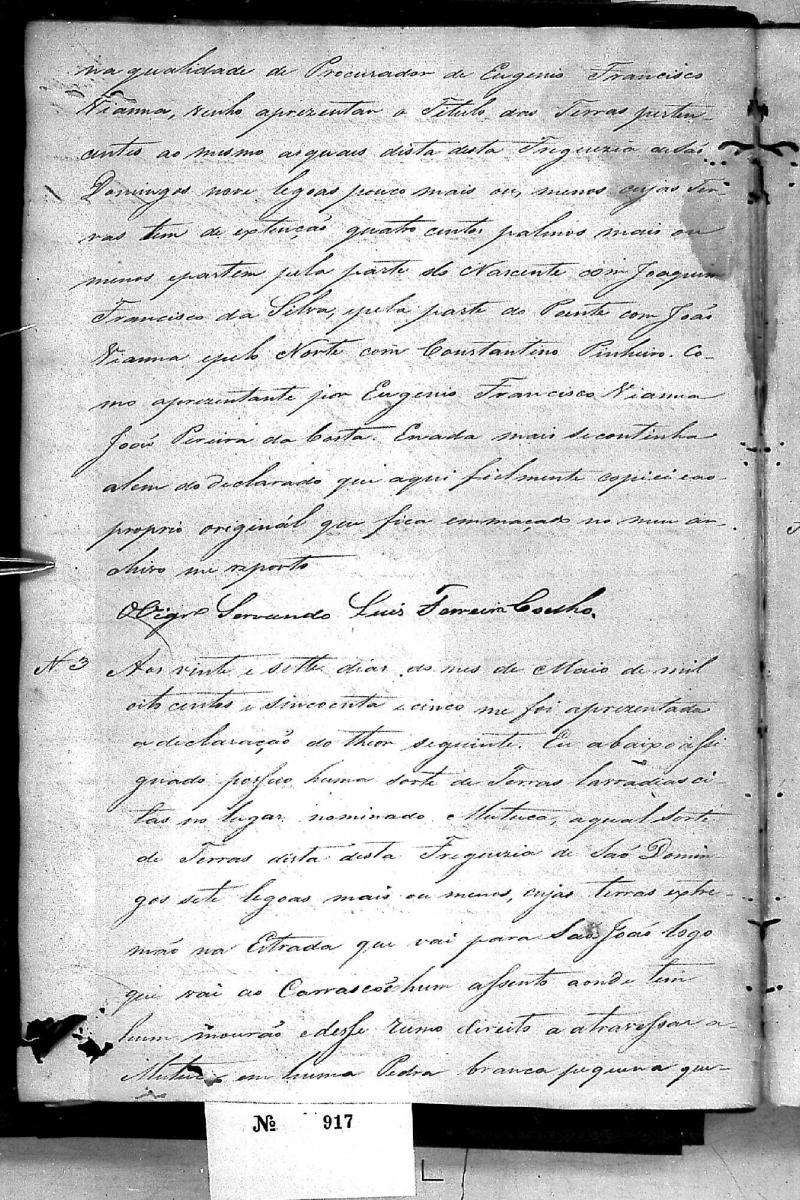 na qualidade de Procurador de Eugenio Francisco
Vianna, venho aprezentar o Titulo das Terras perten-
centes ao mesmo as quais dista desta Freguezia de Saõ
Domingos nove legoas pouco mais ou, menos cujas Ter-
ras tem de extenção quatro centos palmos mais ou
menos epartem pela parte do Nascente com Joaquim
Francisco da Silva, epela parte do Poente com Joaõ
Vianna epelo Norte com Constantino Pinheiro. Co-
mo aprezentante por Eugenio Francisco Vianna
Joaõ Pereira da Costa. Enada mais secontinha
alem do declarado que aqui fielmente copiei eao
proprio original que fica emmaçado no meu ar-
chivo me reporto
O Vigrº Servando Luis Ferreira Coelho.
N 3 Aos vinte e sette dias do mes de Maio de mil
oito centos e sincoenta e cinco me foi aprezentada
a declaração do theor seguinte. Eu abaixo assi
gnado possuo huma sorte de Terras lavradias ci-
tas no lugar nominado Mutuca, aqual sorte
de Terras dista desta Freguezia de Saõ Domin
gos sete legoas mais ou menos, cujas terras extre-
maõ na Estrada que vai para Saõ Joaõ logo
que vai ao Carrasco hum assento aonde tem
hum mouraõ edesse rumo direito a atravessar a
Mutuca em huma Pedra branca pequena que-
Nº 917